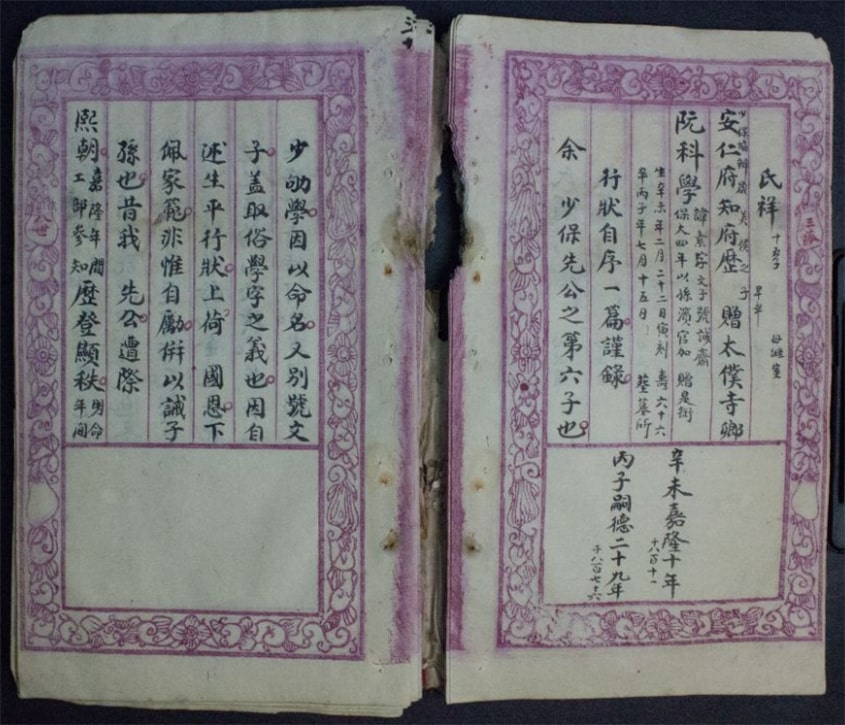 三派
民祥 十五子 早卒
少保 威美侯之子
安仁府知府歷 贈太僕寺卿
阮科學 諱素字文子號誠齋
保大四年以孫濱官加 贈是銜
生辛未年二月二十二日寅刻 壽六十六
卒丙子年七月十五日 葬墓所
行狀自序一篇謹錄
余 少保先公之第六子也
辛未嘉隆十年
十八百十一
丙子嗣德二十九年
千八百七十六
少劬學因以命名又別號文
子蓋取俗學字之義也因自
述生平行狀上荷 國恩下
佩家範非惟自勵倂以誡子
孫也昔我 先公遭際
熙朝 嘉隆年間工部參知 歷登顯秩 明命年間
八世